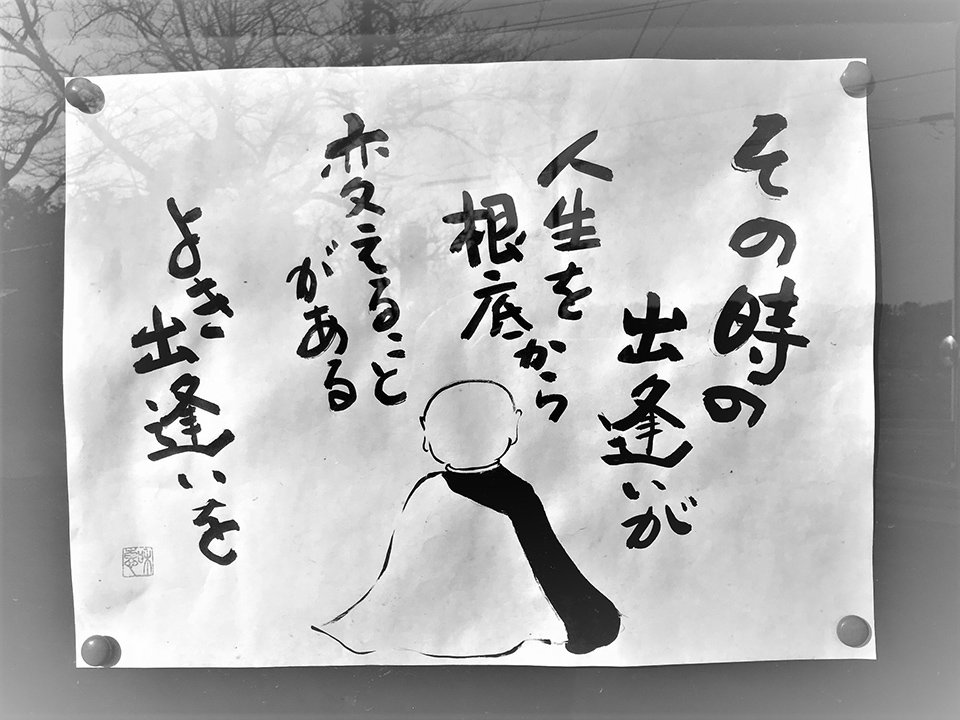 その時の
出逢いが
人生を
根底から
変えること
がある
よき出逢いを